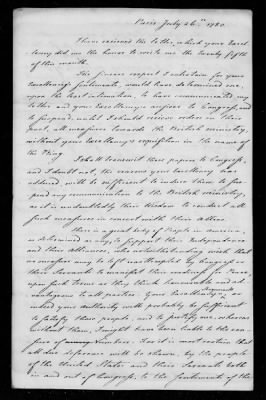 Paris July 26th 1780.
I have received the Letter, which your Excel-
lency did me the honor to write me the twenty fifth
of this month.
The sincere respect I entertain for your
Excellency's sentiments, would have determined me
upon the least intimation, to have communicated my
Letter and your Excellency's answer to Congress, and
to suspend, until I should receive orders in their
part, all measures towards the British ministry,
without your Excellency's requisition in the name of
the King.
I shall transmit these papers to Congress,
and I doubt not, the reasons your Excellency has
adduced will be sufficient to induce them to sus-
pend any communication to the British ministry,
as it is undoubtedly their Wisdom to conduct all
such measures in concert with their allies.
There is a great body of People in America,
as determined as any, to support their Independence
and their alliances, who notwithstanding wish that
no measure may be left unattempted by Congress or
their Servants to manifest their readiness for Peace,
upon such Terms as they think honourable and ad-
vantageous to all parties. Your Excellency's, or
indeed your authority will probably be sufficient
to satisfy these people, and to justify me, whereas
without them, I might have been liable to the cen-
sure of many. For it is most certain that
all due deference will be shewn, by the people
of the United States and their Servants both
in and out of Congress, to the sentiments of the